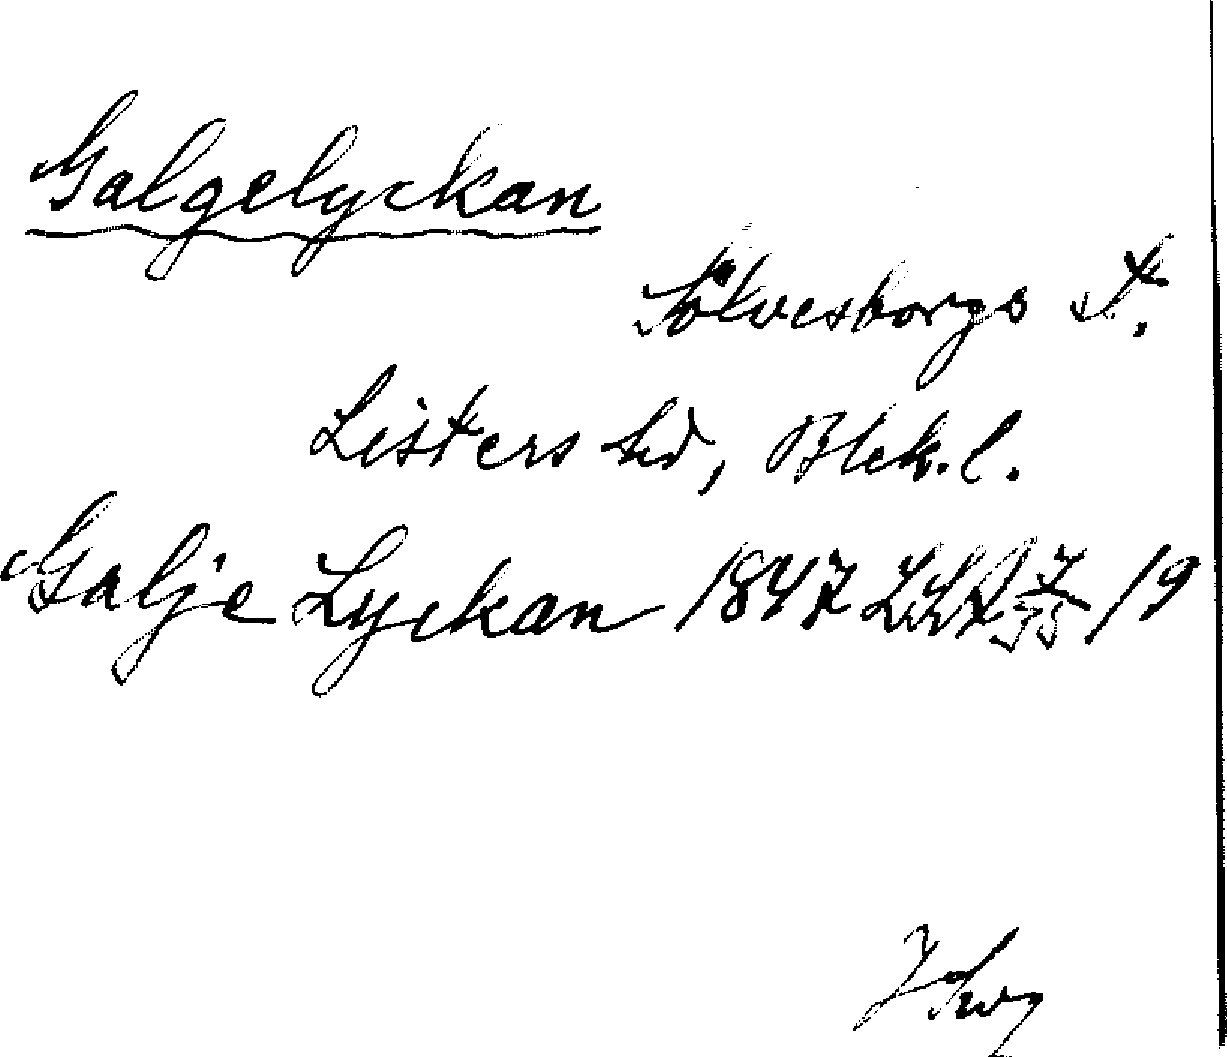 Galgelyckan
Sölvesborgs st.
Listers hd, Blek. l.
Galje Lyckan 1847 /9